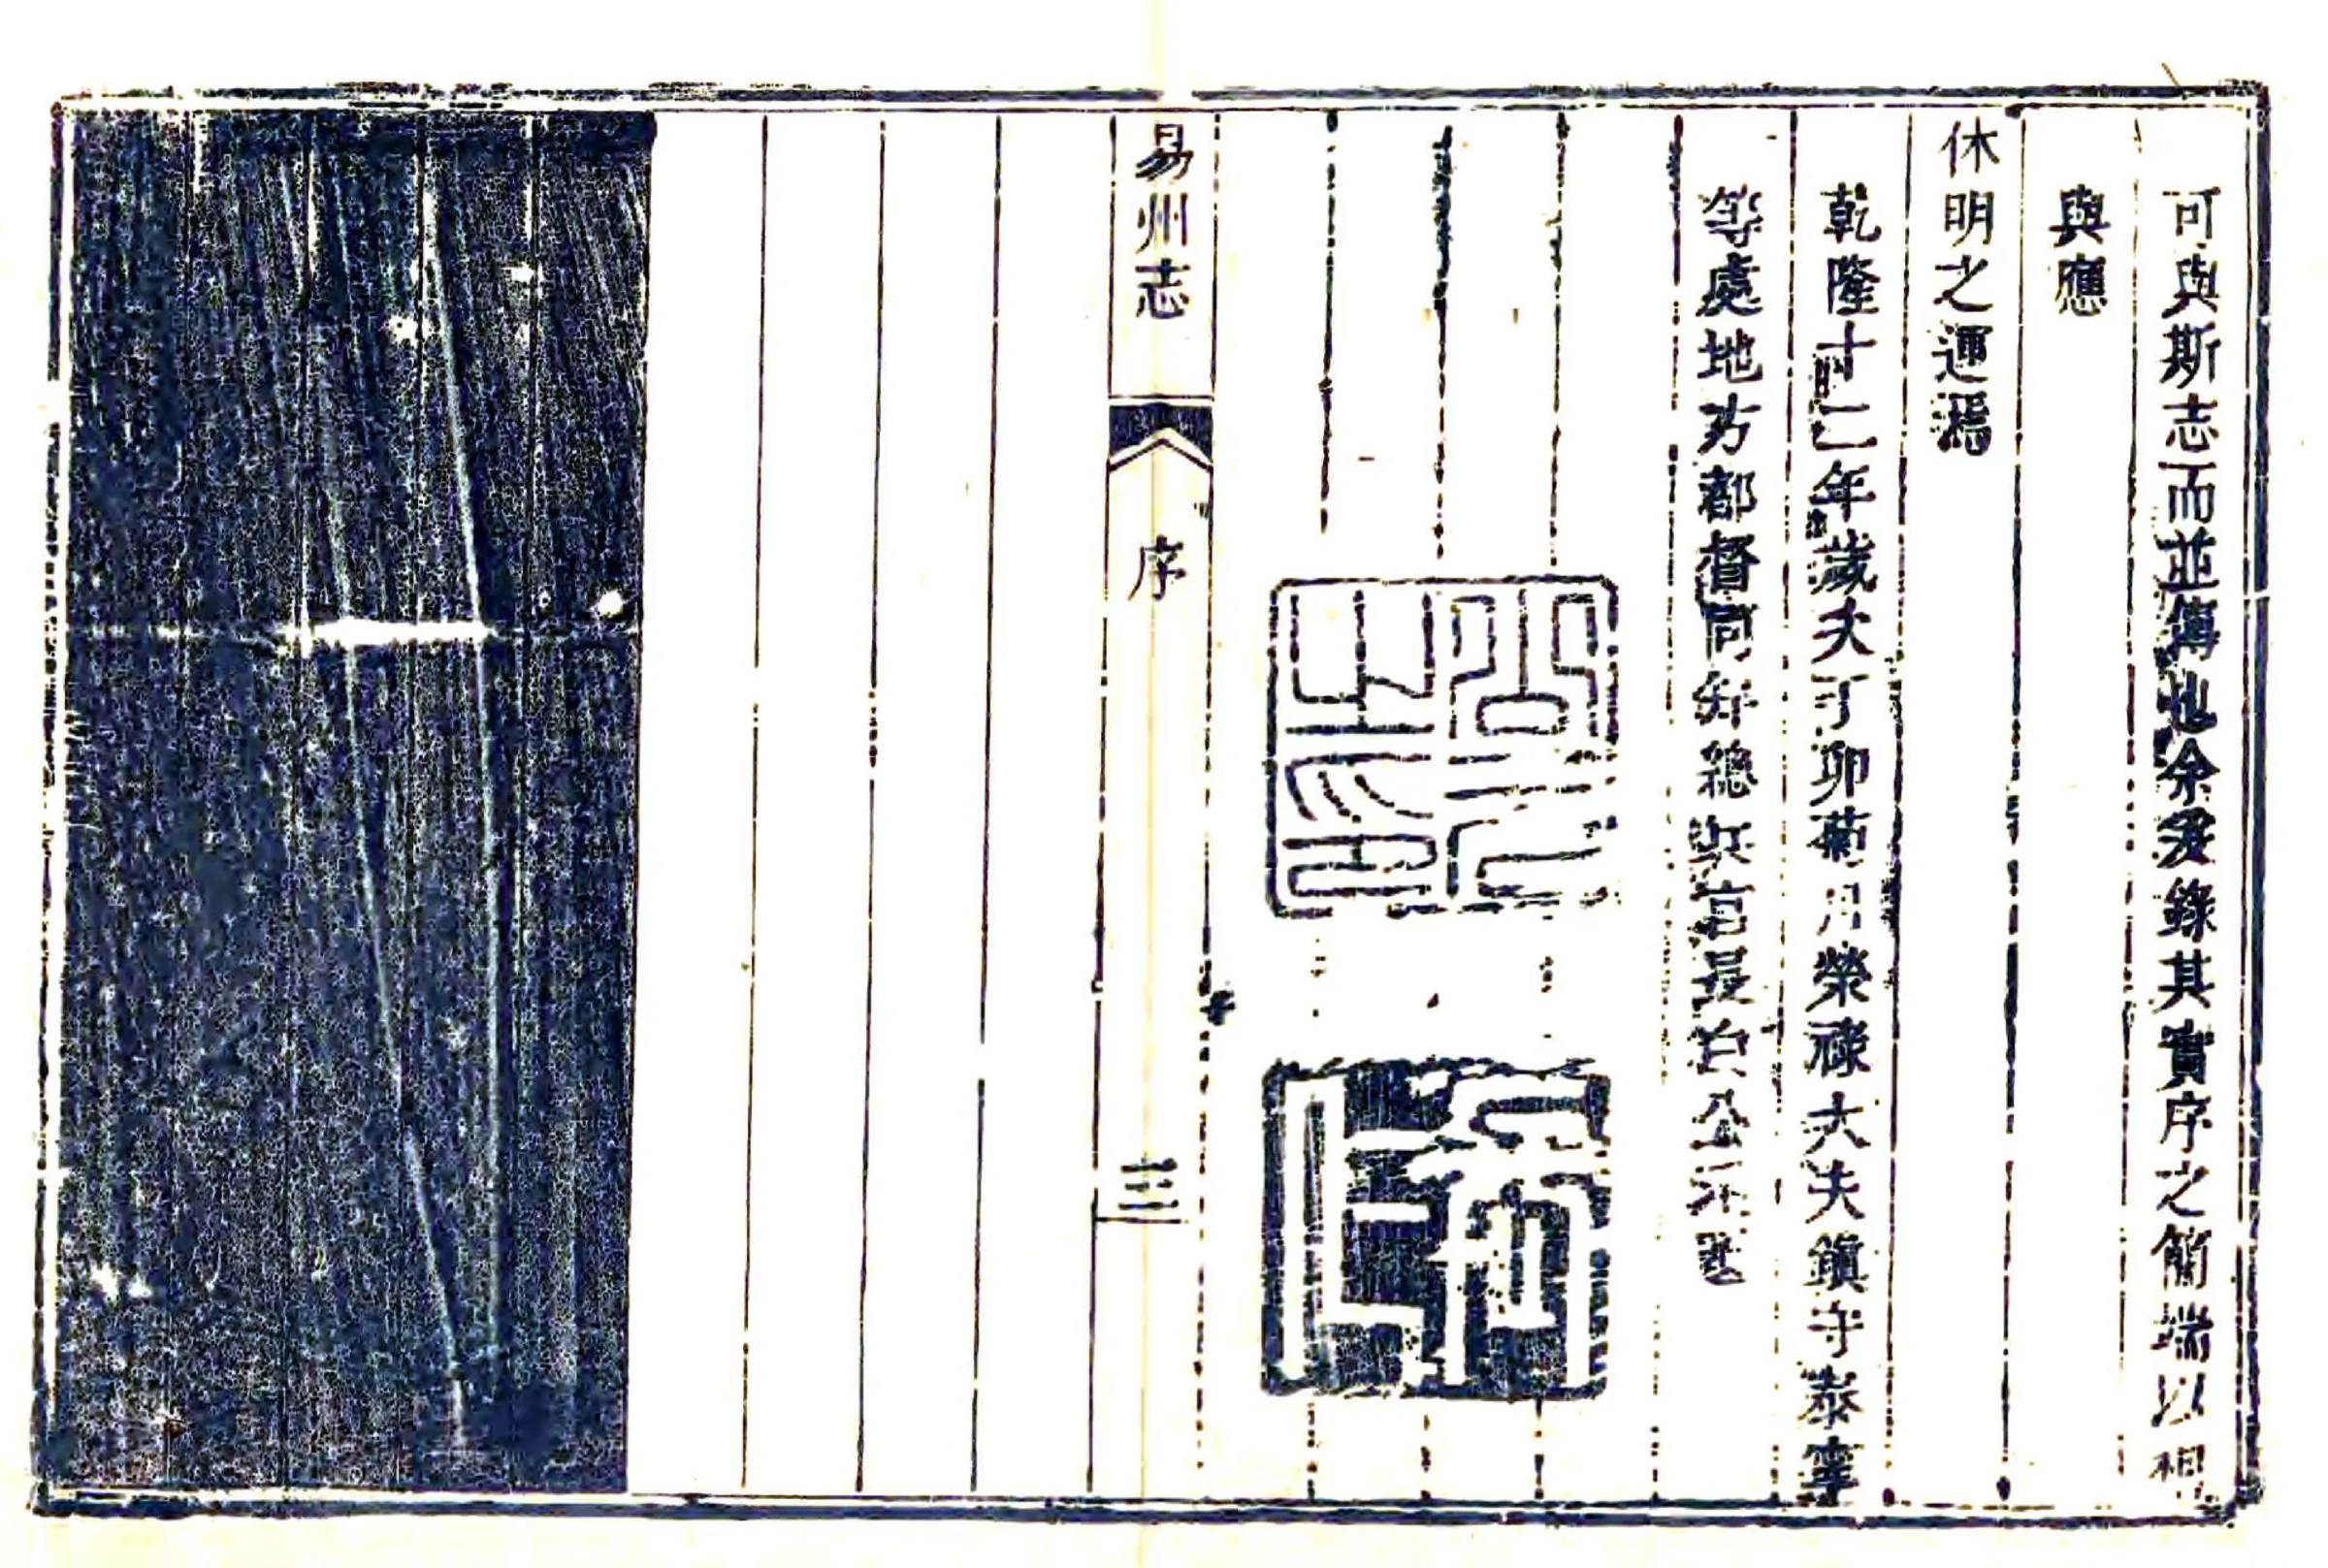 可與斯志而並傳也余爰錄其實序之簡端以相
與應
休明之運焉
乾隆十二年歲次丁卯菊月榮祿大夫鎮守泰寧
等處地方都督同知總兵官長白
易州志
序
三